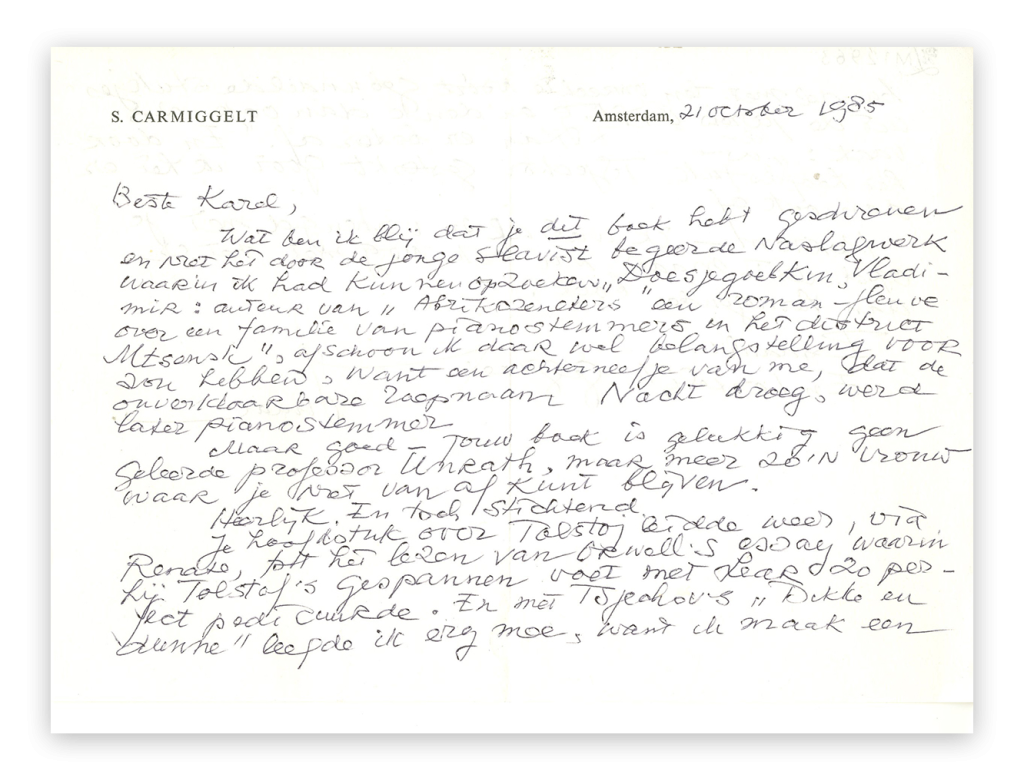 S. CARMIGGELT
Amsterdam, 21 october 1985
Beste Karel,
Wat ben ik blij dat je dit boek hebt geschreven
en niet het door de jonge slavist begeerde naslagwerk
waarin ik had kunnen opzoeken „Doesjegoebkin, Vladi-
mir: auteur van „ " een roman-fleuve
over een familie van pianostemmers in het district
Mtsensk", ofschoon ik daar wel belangstelling voor
zou hebben, want een achterneefje van me, dat de
onverklaarbare roepnaam Nacht droeg, werd
later pianostemmer
Maar goed – Jouw boek is gelukkig geen
geleerde professor Unrath, maar meer zo'n vrouw
waar je niet van af kunt blijven.
Heerlijk. En toch stichtend.
Je hoofdstuk over Tolstoj leidde weer, via
, tot het lezen van Orwell's essay waarin
hij Tolstoj's gespannen voet met Lear zo per-
fect pedicuurde. En met Tsjechov's „Dikke en
dunne" leefde ik erg mee, want ik maak een